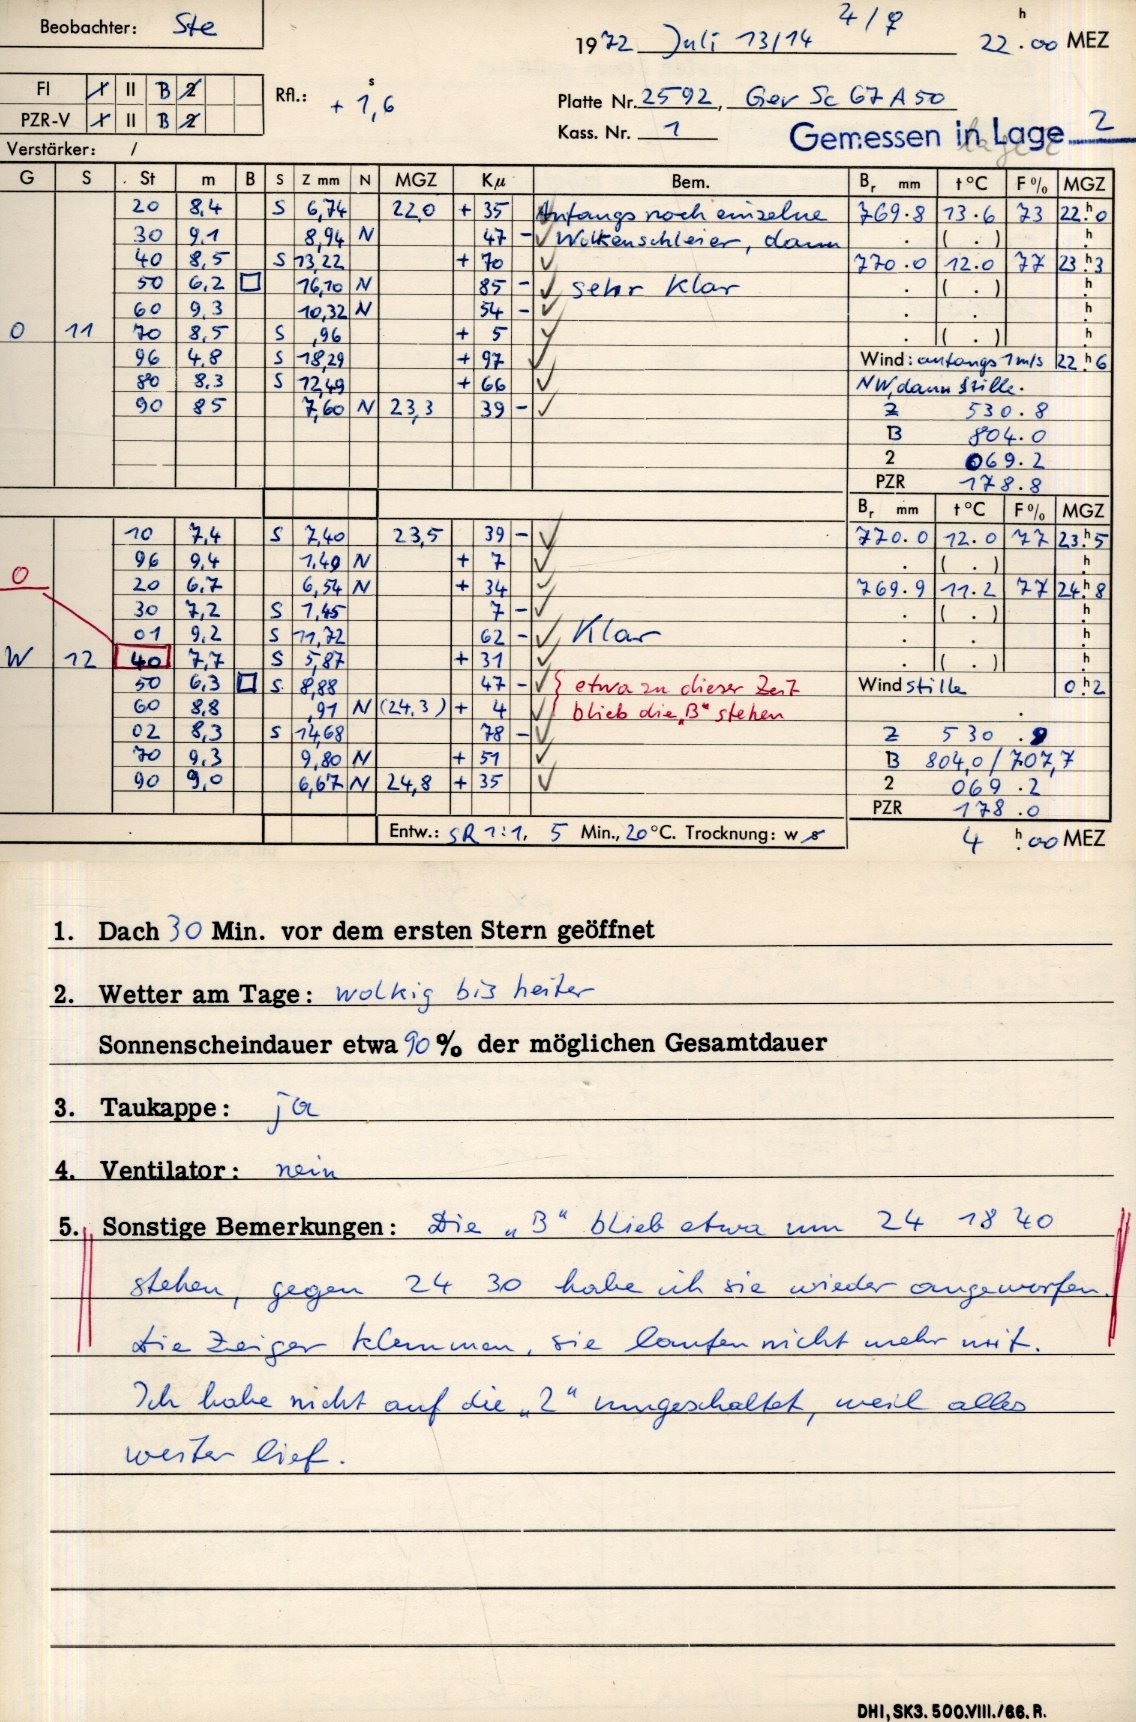 Beobachter: Ste
4/♀
1972 Juli 13/14 22.h00 MEZ
FI I II B 2
PZR-V I II B 2
Rfl.: + 1,s6
Platte Nr. 2592, Gev Sc 67 A 50
Kass. Nr. 1
Gemessen in Lage 2
Verstärker: /
G S St m B S Z mm N MGZ Kµ Bem. Br mm t °C F % MGZ
20 8,4 S 6,74 22,0 + 35 Anfangs noch einzelne 769.8 13.6 73 22.h0
30 9,1 8,94 N 47 - ✓ Wolkenschleier, dann . ( . ) h
40 8,5 S 13,22 + 70 ✓ 770.0 12.0 77 23.h3
50 6,2 □ 16,10 N 85 - ✓ sehr klar . ( . ) h
60 9,3 10,32 N 54 - ✓ . . h
O 11 70 8,5 S ,96 + 5 ✓ . ( . ) h
96 4,8 S 18,29 + 97 ✓ Wind: anfangs 1 m/s 22.h6
80 8,3 S 12,49 + 66 ✓ NW, dann Stille.
90 85 7,60 N 23,3 39 - ✓ Z 530.8
B 804.0
2 069.2
PZR 178.8
Br mm t °C F % MGZ
10 7,4 S 7,40 23,5 39 - ✓ 770.0 12.0 77 23.h5
96 9,4 1,49 N + 7 ✓ . ( . ) h
O 20 6,7 6,54 N + 34 ✓ 769.9 11.2 77 24.h8
30 7,2 S 1,45 7 - ✓ . ( . ) h
01 9,2 S 11,72 62 - ✓ Klar . . h
W 12 40 7,7 S 5,87 + 31 ✓ . ( . ) h
50 6,3 □ S 8,88 47 - ✓ } etwa zu dieser Zeit Wind stille 0.h2
60 8,8 ,91 N (24,3) + 4 ✓ } blieb die „B“ stehen .
02 8,3 S 14,68 78 - ✓ Z 530.9
70 9,3 9,80 N + 51 ✓ B 804,0/707,7
90 9,0 6,67 N 24,8 + 35 ✓ 2 069.2
PZR 178.0
Entw.: SR 1:1, 5 Min., 20 °C. Trocknung: w s 4 h.00 MEZ
1. Dach 30 Min. vor dem ersten Stern geöffnet
2. Wetter am Tage: wolkig bis heiter
Sonnenscheindauer etwa 90 % der möglichen Gesamtdauer
3. Taukappe: ja
4. Ventilator: nein
5. Sonstige Bemerkungen: Die „B“ blieb etwa um 24 18 40
stehen, gegen 24 30 habe ich sie wieder angeworfen.
Die Zeiger klemmen, sie laufen nicht mehr mit.
Ich habe nicht auf die „2“ umgeschaltet, weil alles
weiter lief.
DHI, SK3. 500.VIII./66. R.